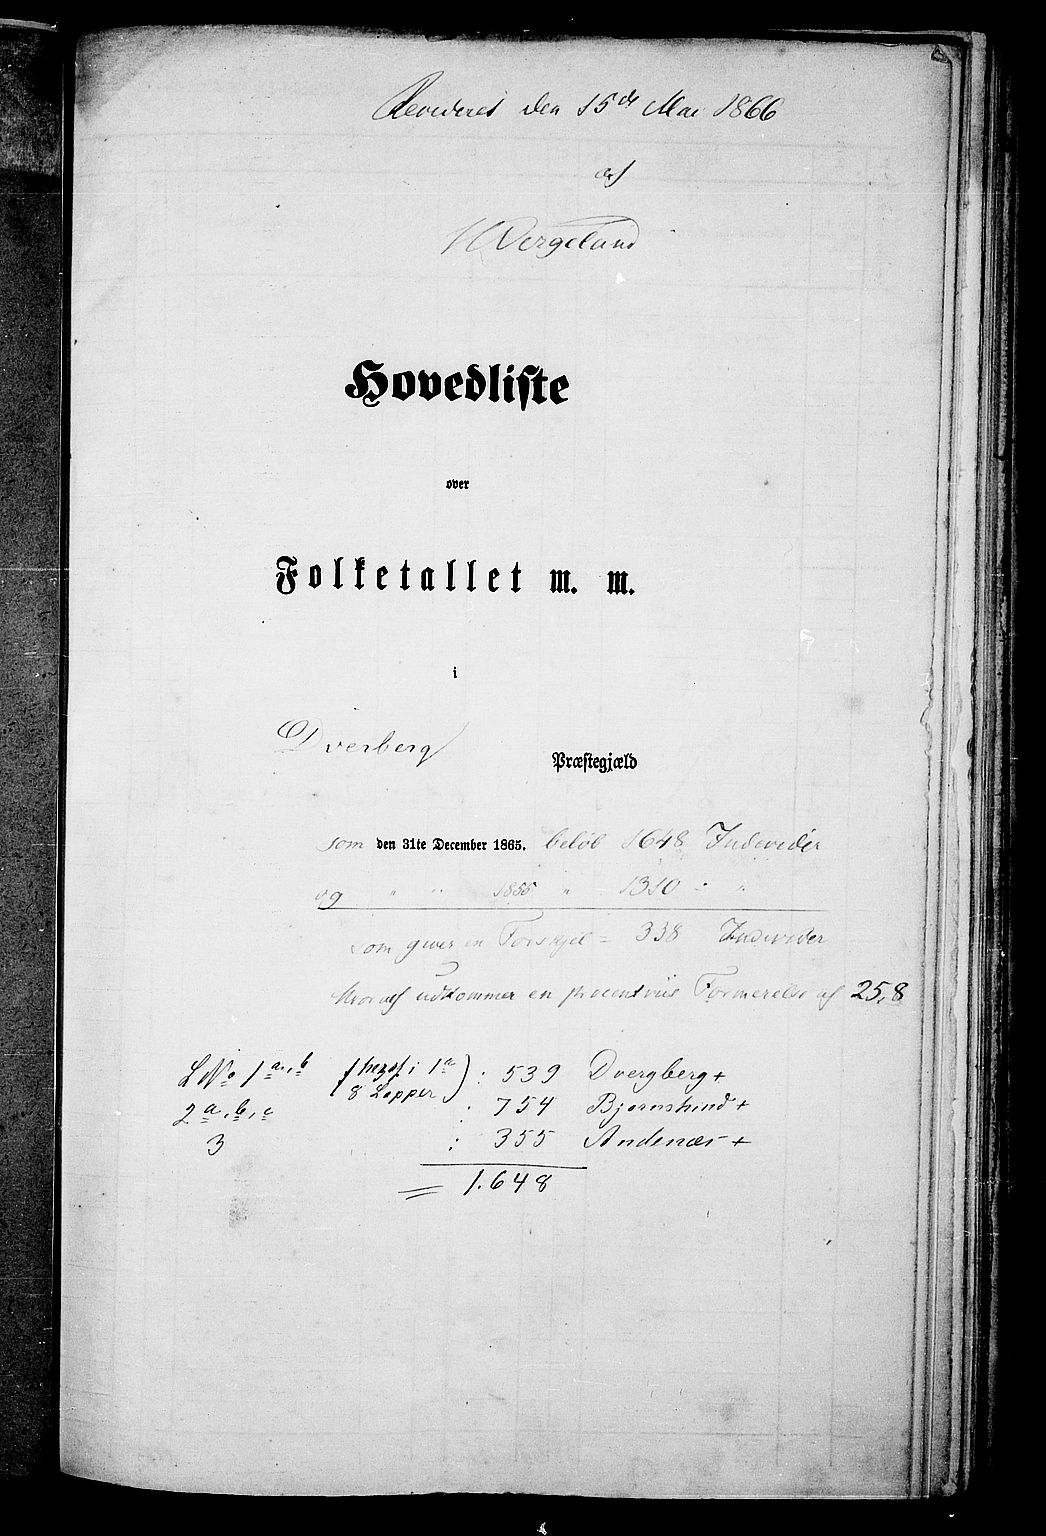 Revideret den 15de Mai 1866
af
Wergeland
Hovedliste
over
Folketallet m. m.
i
Dverberg Præstegjæld
som den 31te December 1865. beløb 1648 Individer
og " " 1855 " 1310 " "
som giver en Forskjel = 338 Individer
hvoraf udkommer en procentviis Formerelse af 25,8
LNo 1 a, b (heraf i 1a : 539 Dvergberg +
8 Lapper)
2 a, b, c : 754 Bjørnskind +
3 : 355 Andenæs +
= 1.648